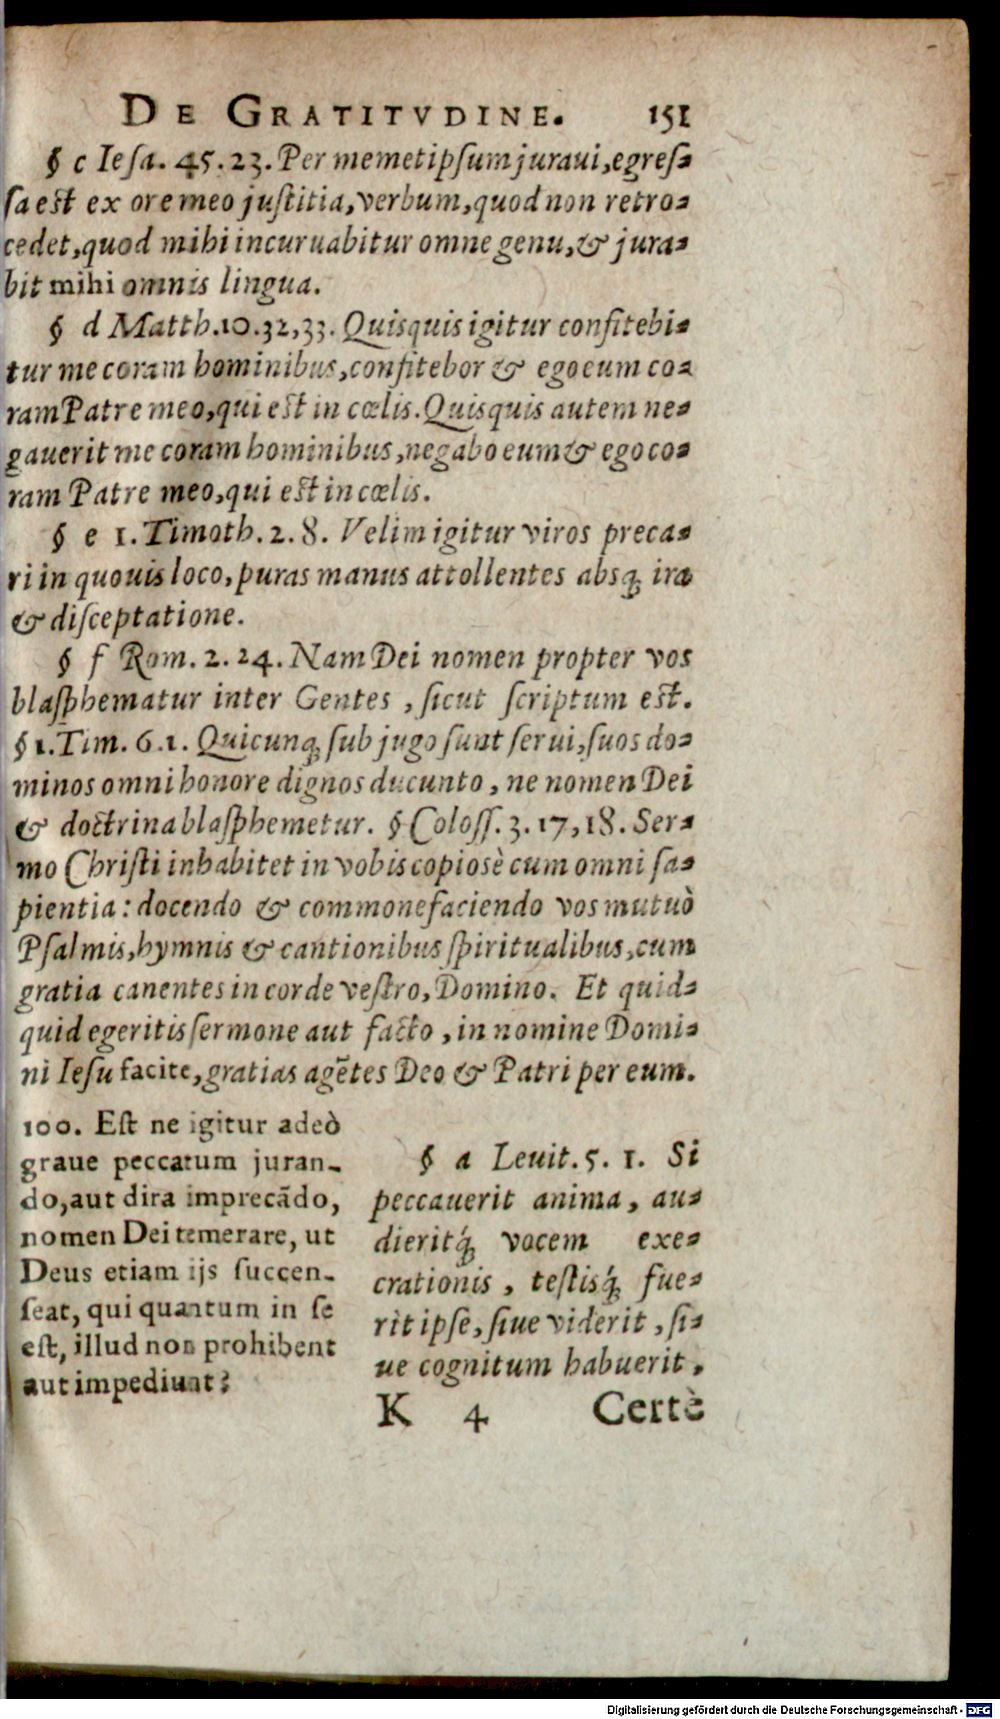 DE GRATITVDINE. 151
§ c Iesa. 45. 23. Per memetipsum juraui, egres-
sa est ex ore meo justitia, verbum, quod non retro-
cedet, quod mihi incuruabitur omne genu, & jura-
bit mihi omnis lingua.
§ d Matth. 10. 32, 33. Quisquis igitur confitebi-
tur me coram hominibus, confitebor & ego eum co-
ram Patre meo, qui est in cœlis. Quisquis autem ne-
gauerit me coram hominibus, negabo eum & ego co-
ram Patre meo, qui est in cœlis.
§ e 1. Timoth. 2. 8. Velim igitur viros preca-
ri in quouis loco, puras manus attollentes absq; ira
& disceptatione.
§ f Rom. 2. 24. Nam Dei nomen propter vos
blasphematur inter Gentes, sicut scriptum est.
§ 1. Tim. 6. 1. Quicunq; sub jugo sunt serui, suos do-
minos omni honore dignos ducunto, ne nomen Dei
& doctrina blasphemetur. § Coloss. 3. 17, 18. Ser-
mo Christi inhabitet in vobis copiosè cum omni sa-
pientia: docendo & commonefaciendo vos mutuò
Psalmis, hymnis & cantionibus spiritualibus, cum
gratia canentes in corde vestro, Domino. Et quid-
quid egeritis sermone aut facto, in nomine Domi-
ni Iesu facite, gratias agētes Deo & Patri per eum.
100. Est ne igitur adeò
graue peccatum juran-
do, aut dira imprecādo,
nomen Dei temerare, ut
Deus etiam ijs succen-
seat, qui quantum in se
est, illud non prohibent
aut impediunt?
§ a Leuit. 5. 1. Si
peccauerit anima, au-
dieritq́; vocem exe-
crationis, testisq́; fue-
rit ipse, siue viderit, si-
ue cognitum habuerit,
K 4 Certè
Digitalisierung gefördert durch die Deutsche Forschungsgemeinschaft - DFG